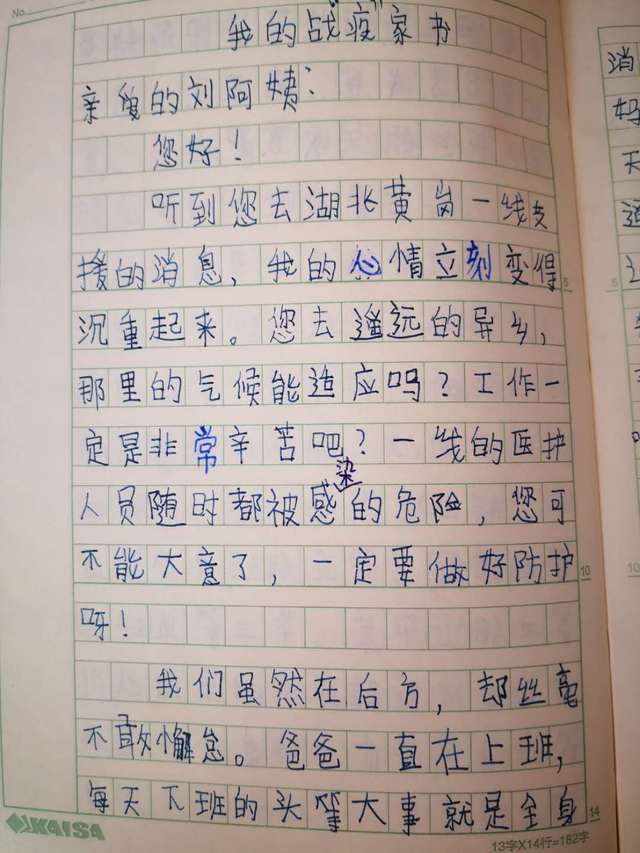 No.
我的战疫家书
亲爱的刘阿姨:
您好!
听到您去湖北黄岗一线支
援的消息,我的心情立刻变得
沉重起来。您去遥远的异乡,
那里的气候能适应吗?工作一
定是非常辛苦吧?一线的医护
人员随时都被感染的危险,您可
不能大意了,一定要做好防护
呀!
我们虽然在后方,却丝毫
不敢懈怠。爸爸一直在上班,
每天下班的头等大事就是全身
KAISA
13字X14行=182字
5
10
14
消
妈
天
5
10